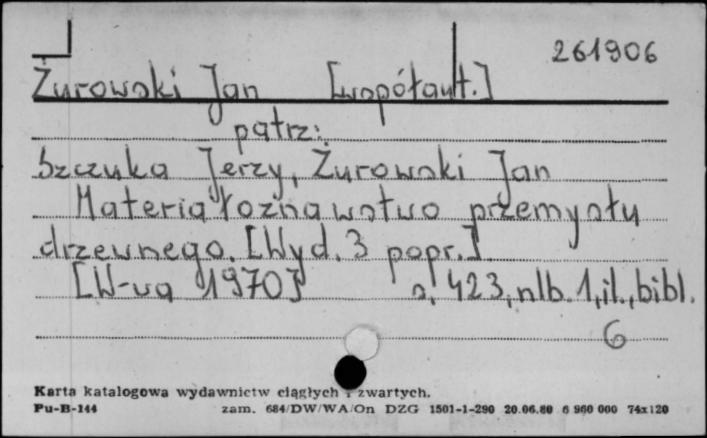 261906
Żurowski Jan [współaut.]
patrz:
Szczuka Jerzy, Żurowski Jan
Materiałoznawstwo przemysłu
drzewnego. [Wyd. 3 popr.]
[W-wa 1970] s. 423, nlb. 1, il., bibl.
6
Karta katalogowa wydawnictw ciągłych i zwartych.
Pu-B-144 zam. 684/DW/WA/On DZG 1501-1-290 20.06.80 6 960 000 74x120